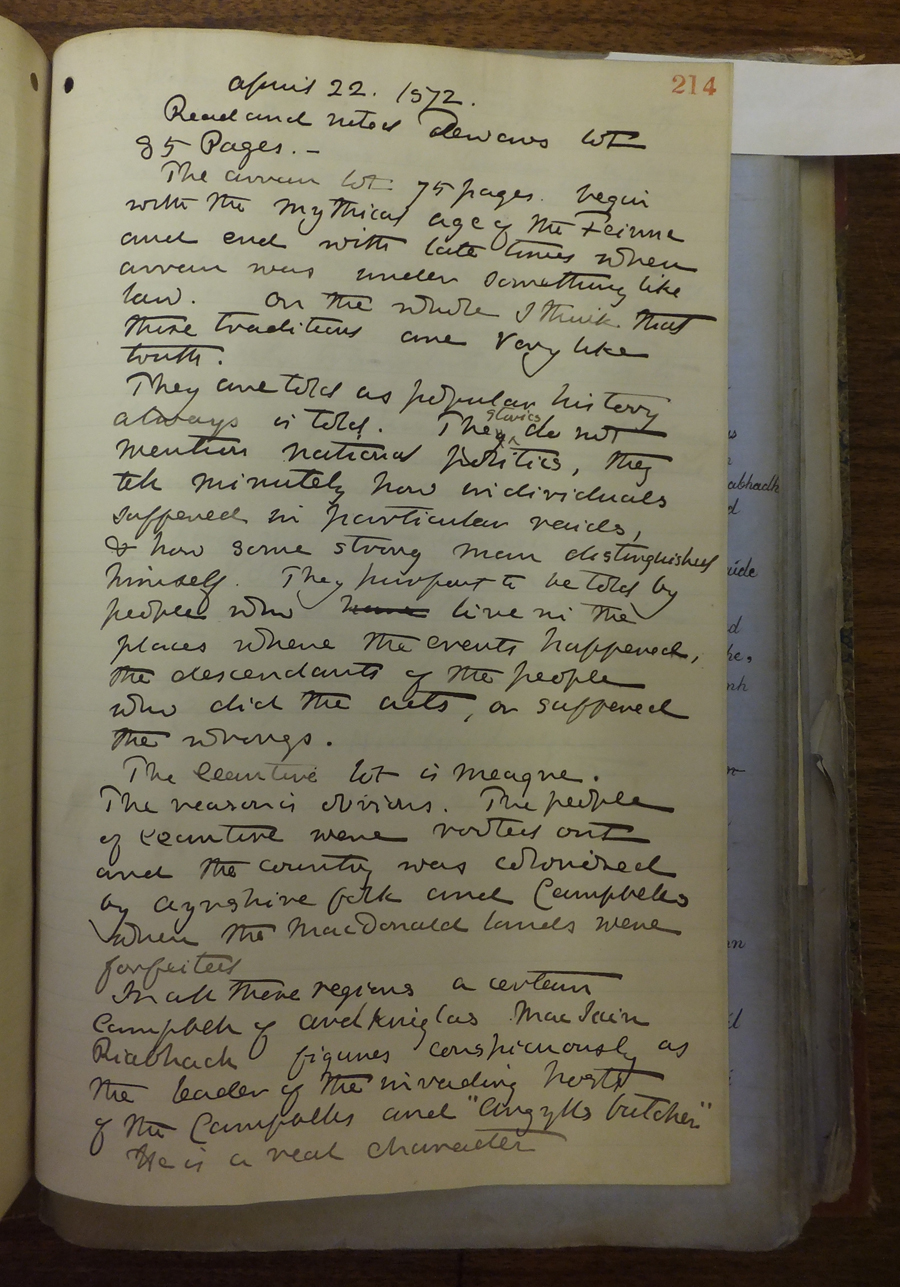 214
April 22. 1872.
Read and noted Dewars lot
85 Pages. -
The arran lot 75 pages. begin
with the mythical age of the Feinne
and end with late times when
arran was under something like
law. On the whole I think that
these traditions are very like
truth.
They are told as popular history
always is told. The stories do not
mention national politics, they
tell minutely how individuals
suffered in particular raids,
& how some strong man distinguished
himself. They purport to be told by
people who have live in the
places where the events happened,
the descendants of the people
who did the acts, or suffered
the wrongs.
The Ceantire lot is meagre.
The reason is obvious. The people
of Ceantire were rooted out
and the country was colonized
by ayrshire folk and Campbells
when the MacDonald lands were
forfeited
In all these regions a certain
Campbell of ardkniglas MacIain
Riabhach figures conspicuously as
the leader of the invading hosts
of the Campbells and "Argylls butcher"
He is a real character
abhadh
d
ide
d
he,
nh